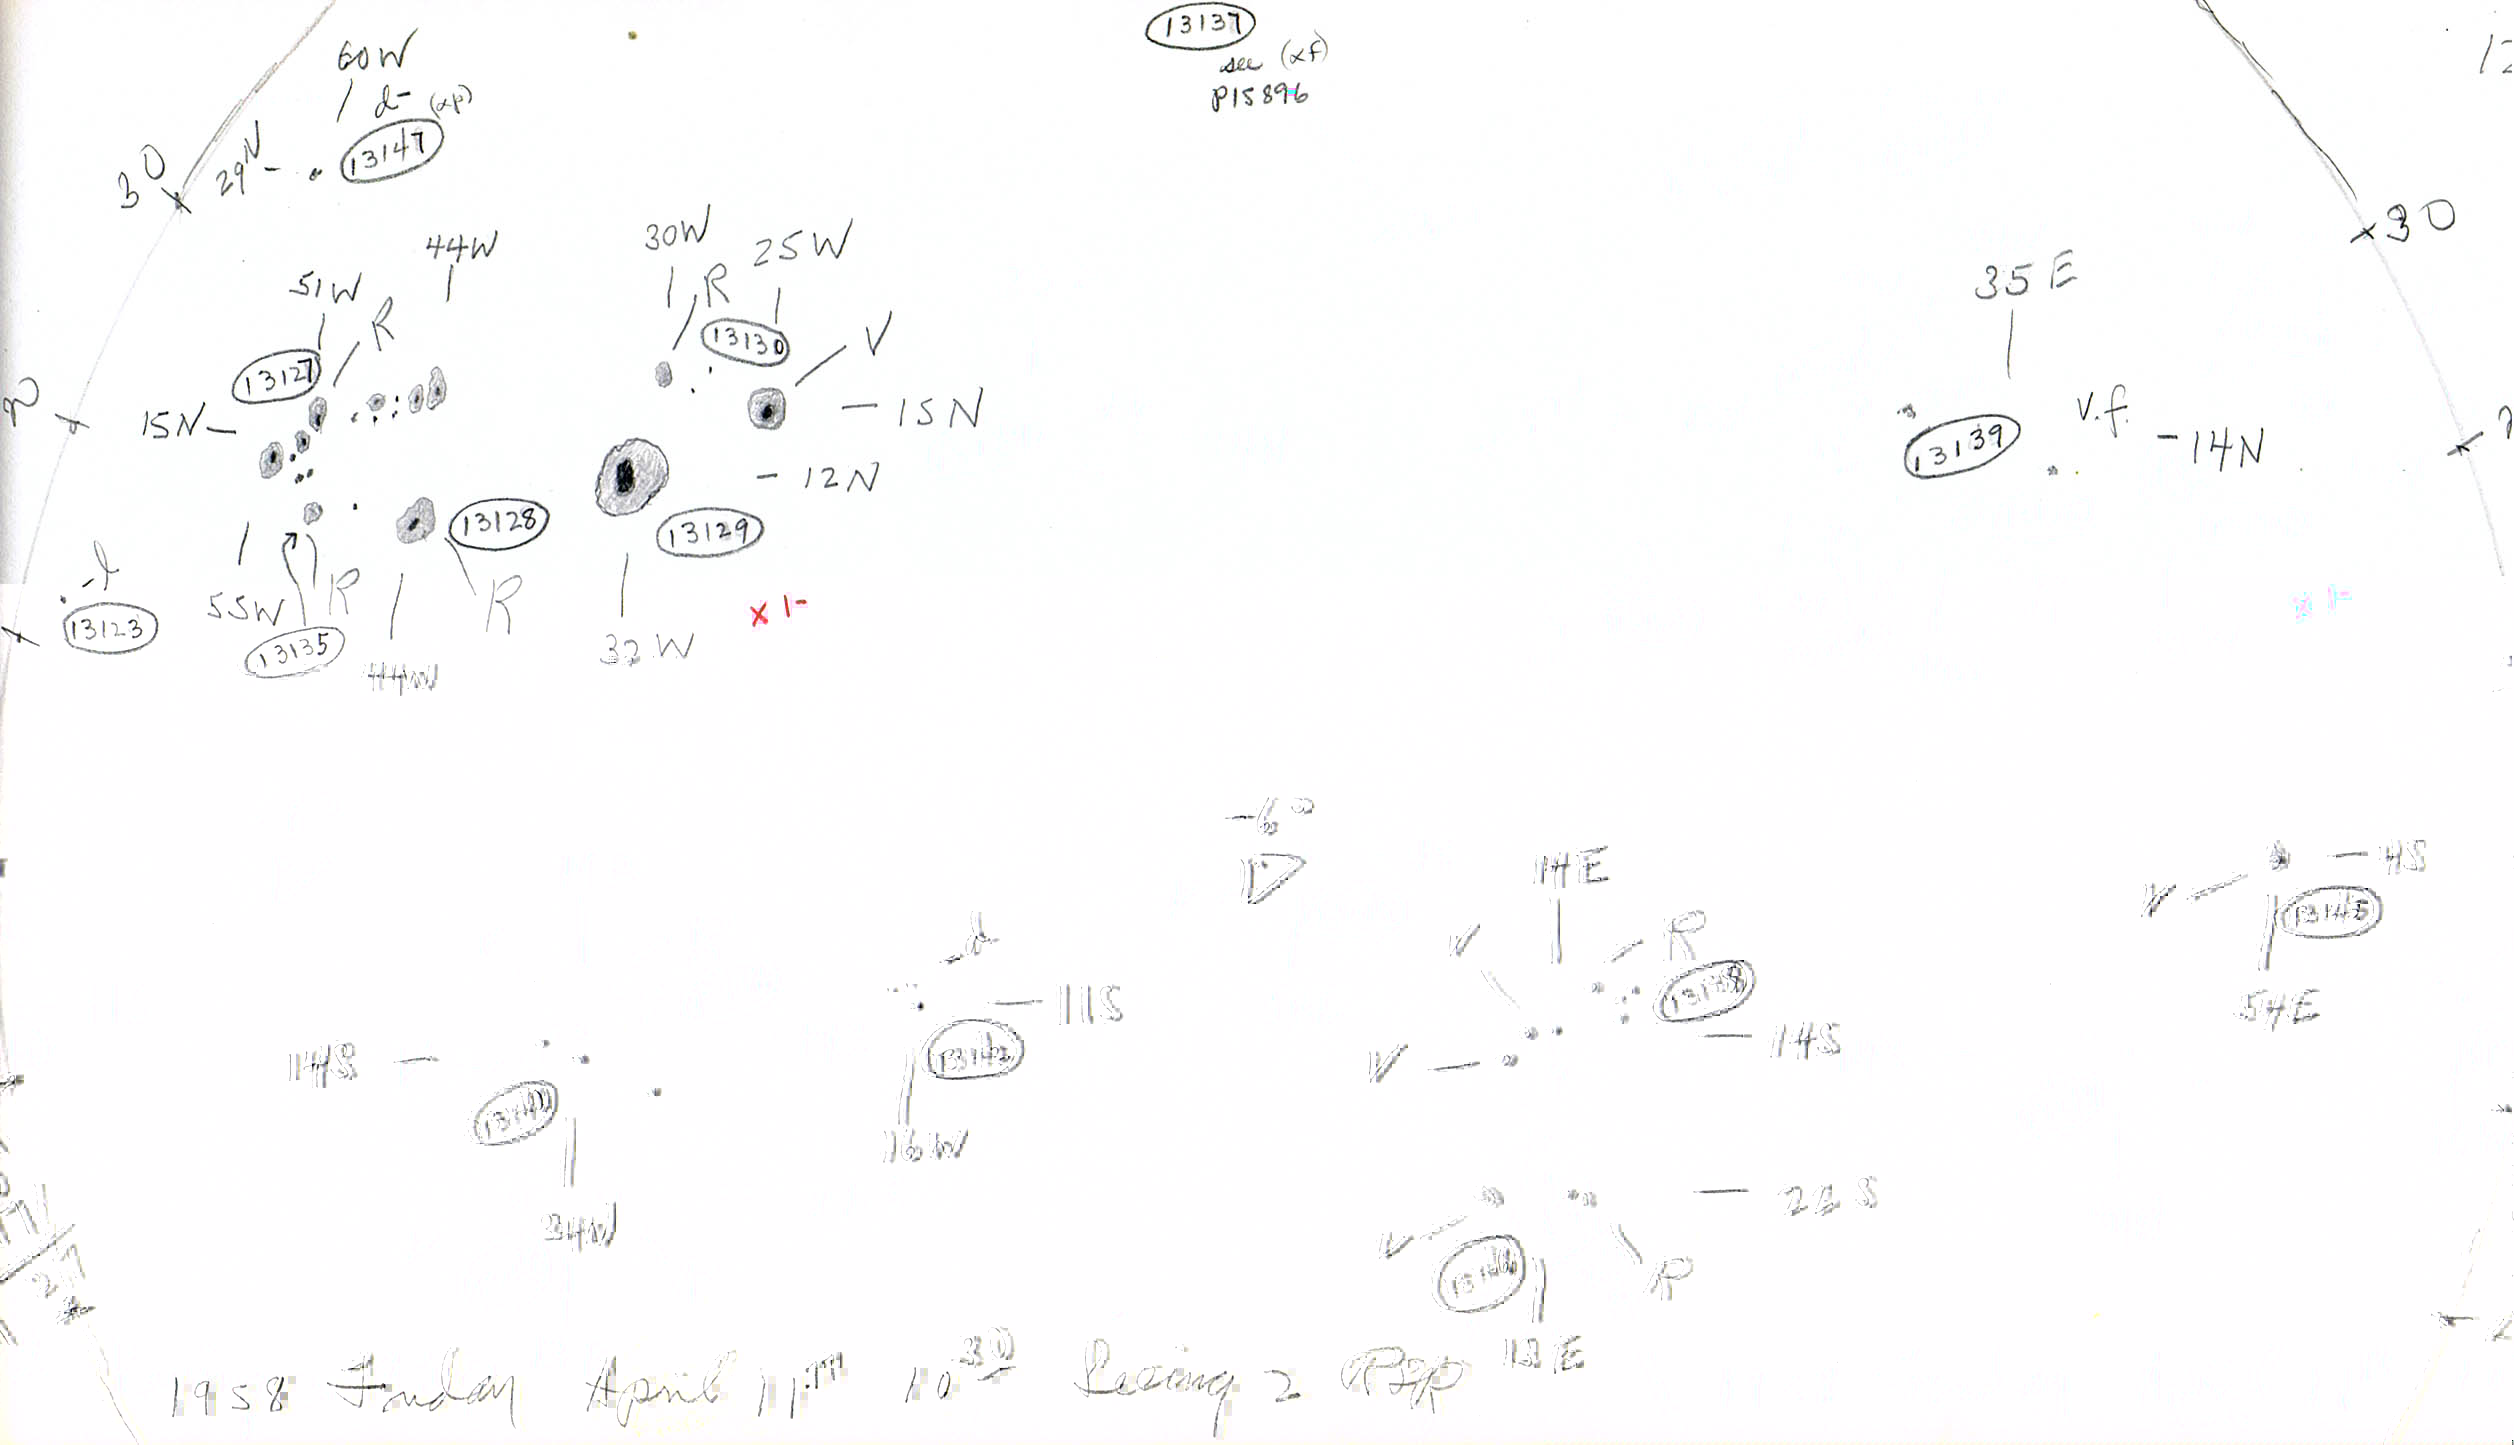 13137
see (αf)
P15896
60W
d- (αp)
13147
30
29N
44W
51W
R
13127
15N
30W
R
25W
13130
V
15N
12N
13128
13129
R
R
55W
13135
44W
32W
X 1-
-l
13123
30
35E
13139
v.f.
14N
-6°
14E
V
R
V
14S
V
4S
54E
d
11S
16W
14S
34W
22S
V
R
1958 Friday April 11TH 10 30 Seeing 2